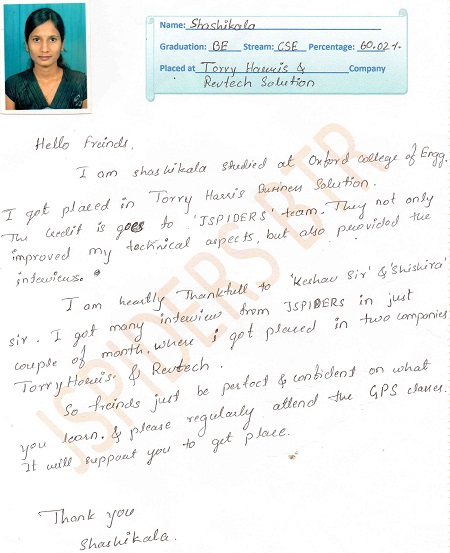 Name: Shashikala
Graduation: BE Stream: CSE Percentage: 60.02%
Placed at Torry Harris & Company
Revtech Solution
Hello Freinds,
I am shashikala studied at Oxford college of Engg.
I got placed in Torry Harris Business Solution.
The credit is goes to 'JSPIDERS' team. They not only
improved my technical aspects, but also provided the
interviews.
I am heartly Thankfull to 'Keshav Sir' & 'Shishira'
sir. I got many interview from JSPIDERS in just
couple of month, where i got placed in two companies
Torry Harris & Revtech.
So freinds just be perfect & confident on what
you learn. & please regularly attend the GPS classes.
It will support you to get place.
Thank you
Shashikala.
JSPIDERS BTR